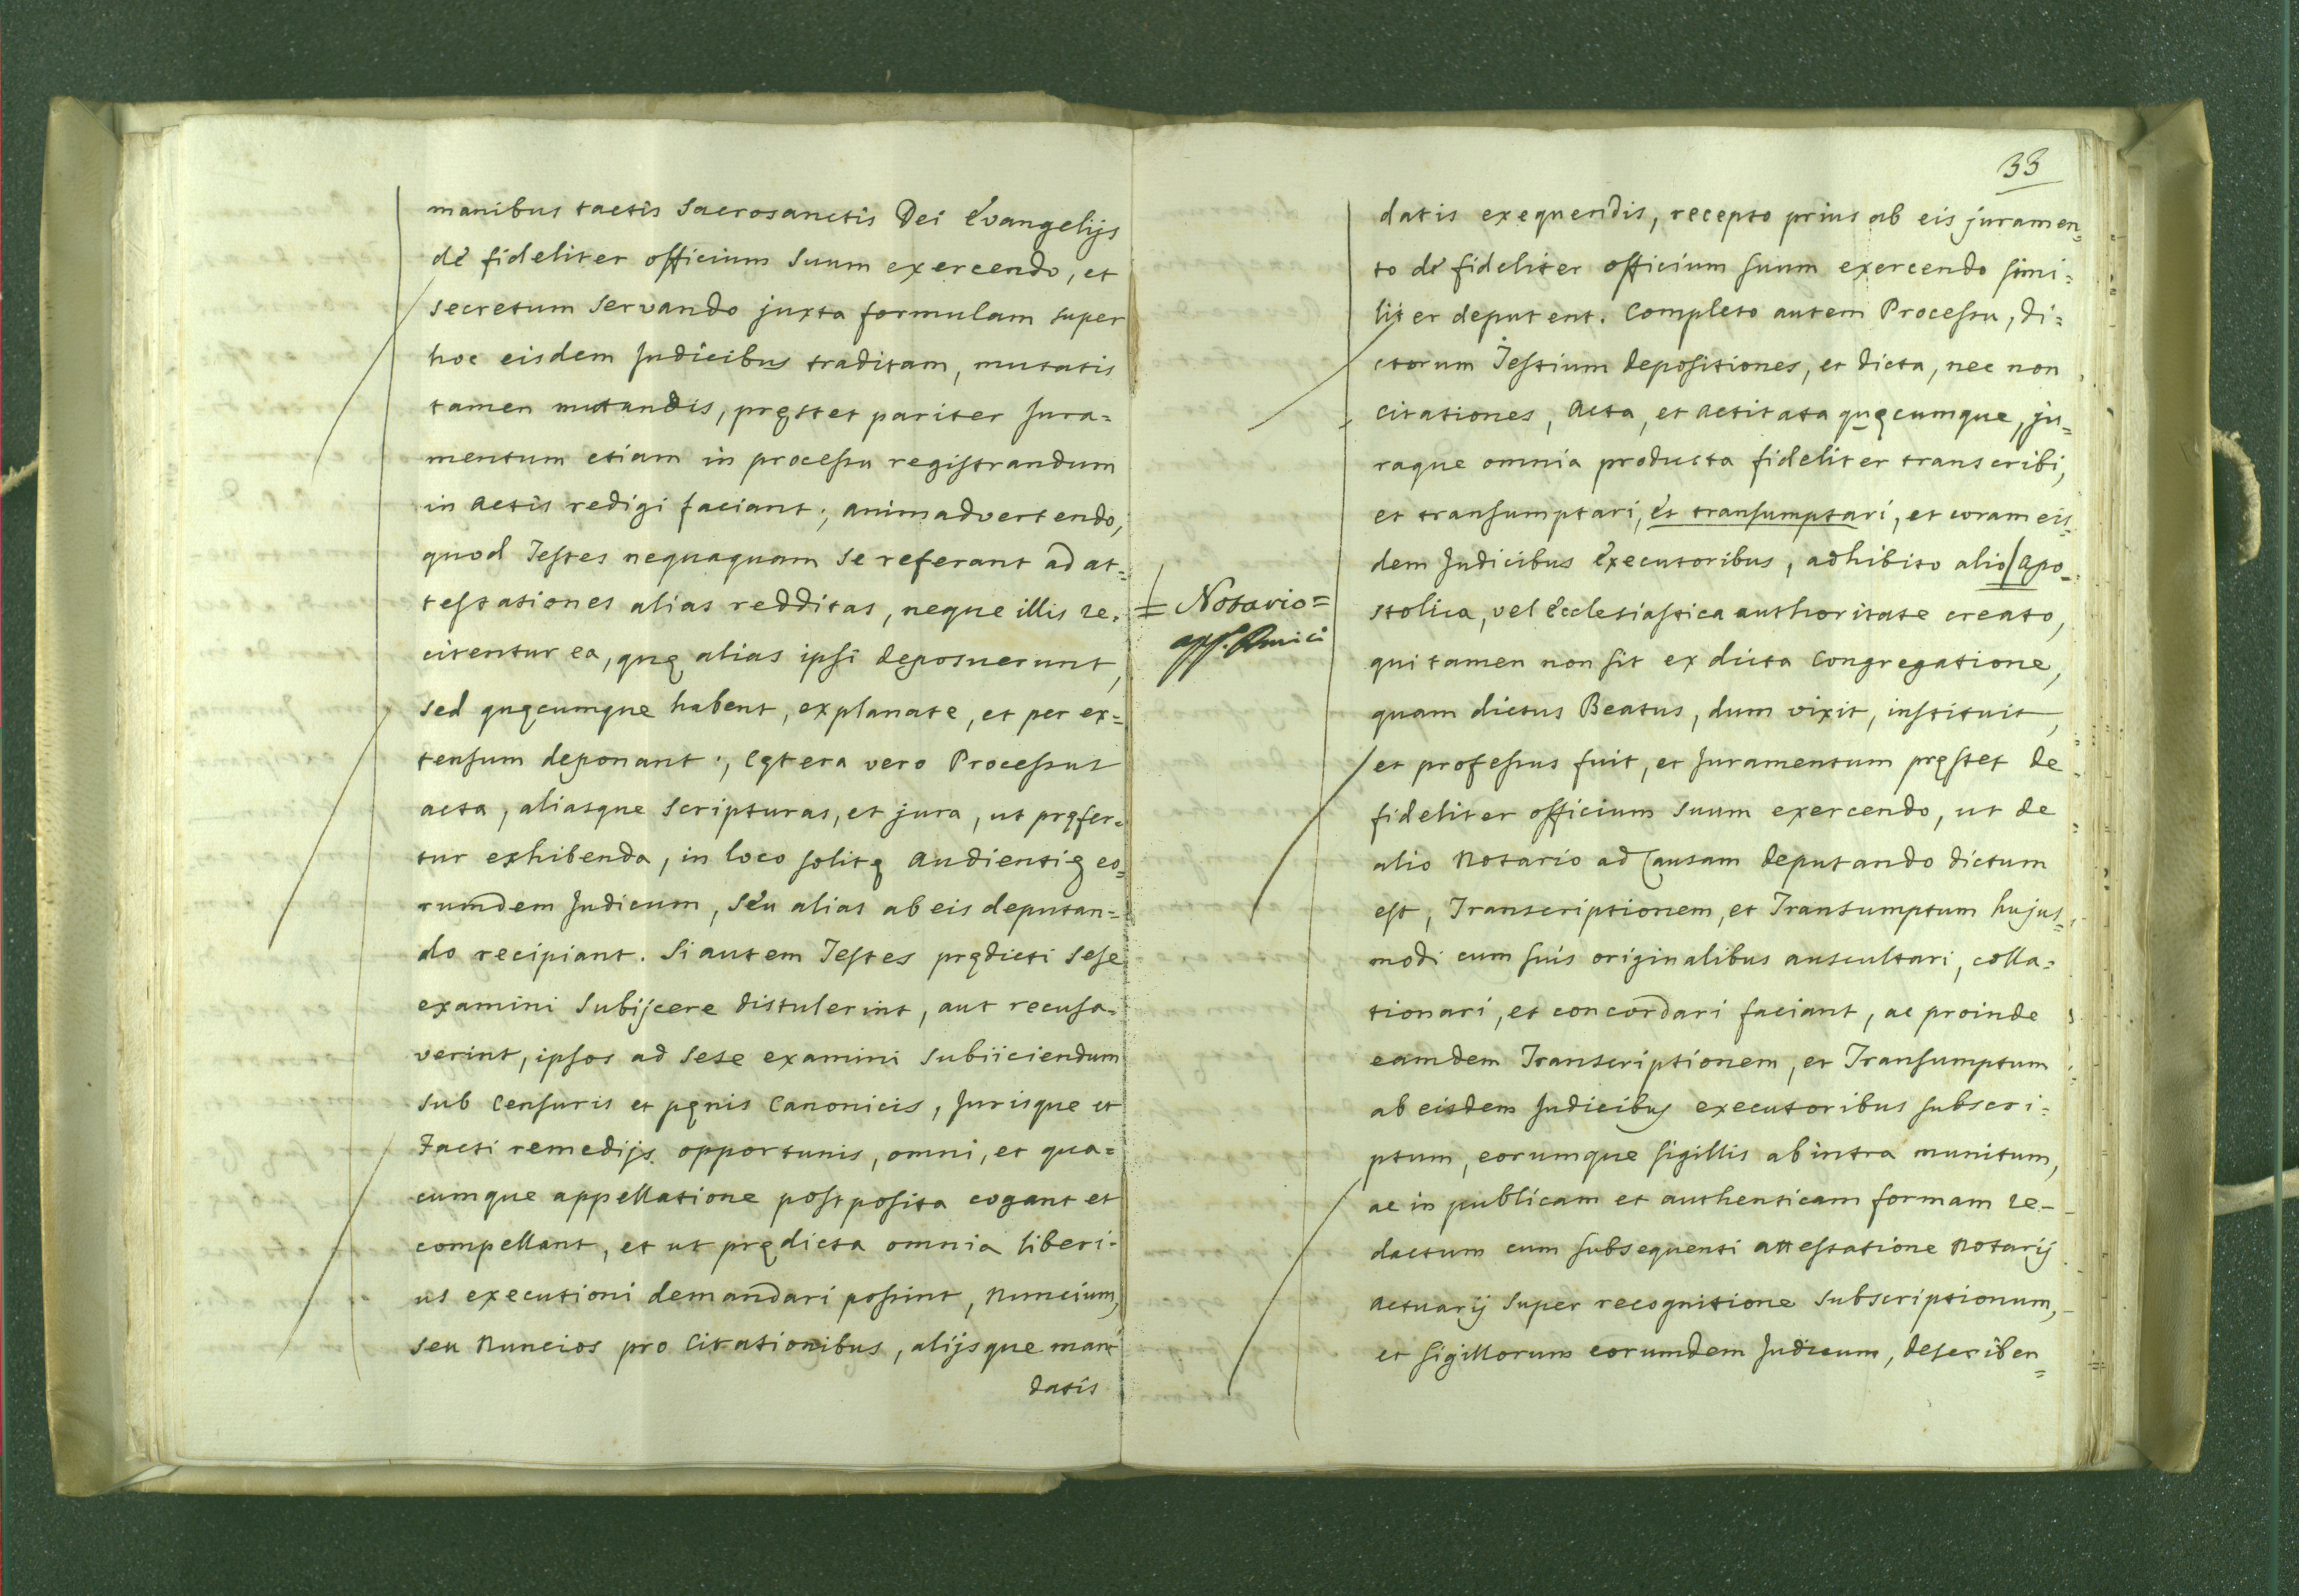 manibus tactis Sacrosanctis Dei Evangelijs
dè fideliter officium Suum exercendo, et
Secretum Servando juxta formulam super
hoc eisdem Judicibus traditam, mutatis
tamen mutandis, pręstet pariter Jura=
mentum etiam in processu registrandum
in Actis redigi faciant; animadvertendo,
quod Testes nequaquam Se referant ad at=
testationes alias redditas, neque illis re=
citentur ea, quę alias ipsi deposuerunt,
Sed quęcumque habent, explanate, et per ex=
tensum deponant; Cętera vero Processus
acta, aliasque Scripturas, et jura, ut pręfer=
tur exhibenda, in loco solitę Audientię eo=
rumdem Judicum, Sèu alias ab eis deputan=
do recipiant. Si autem Testes prędicti Sese
examini Subijcere distulerint, aut recusa=
verint, ipsos ad Sese examini Subiiciendum
Sub Censuris et pęnis Canonicis, Jurisque et
Facti remedijs opportunis, omni, et qua=
cumque appellatione postposita cogant et
compellant, et ut prędicta omnia liberi=
us executioni demandari possint, Nuncium,
Seu Nuncios pro Citationibus, alijsque man
datis
33
datis exequendis, recepto prius ab eis juramen=
to dè fideliter officium suum exercendo simi=
liter deputent. Completo autem Processu, di=
ctorum Testium depositiones, et dicta, nec non
Citationes, Acta, et Actitata quęcumque, ju=
raque omnia producta fideliter transcribi,
et transumptari, et transumptari, et coram eis=
dem Judicibus Executoribus, adhibito alio/Apo=
= Notario=
stolica, vel Ecclesiastica authoritate creato,
qui tamen non sit ex dicta Congregatione,
quam dictus Beatus, dum vixit, instituit,
et professus fuit, et Juramentum pręstet de
fideliter officium Suum exercendo, ut de
alio Notario ad Causam deputando dictum
est, Transcriptionem, et Transumptum hujus=
modi cum suis originalibus auscultari, colla=
tionari, et concordari faciant, ac proinde
eamdem Transcriptionem, et Transumptum
ab eisdem Judicibus executoribus subscri=
ptum, eorumque sigillis ab intra munitum,
ac in publicam et authenticam formam re-
dactum cum subsequenti attestatione Notarij
Actuarij Super recognitione Subscriptionum,
et sigillorum eorumdem Judicum, describen=